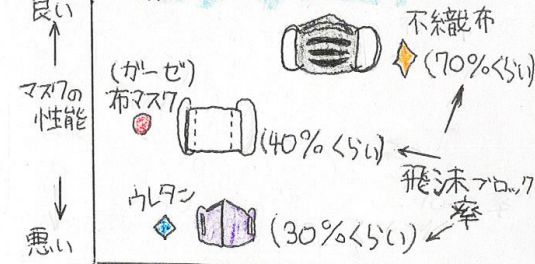 良い
マスクの
性能
悪い
不織布
(70%くらい)
(ガーゼ)
布マスク
(40%くらい)
飛沫ブロック
率
ウレタン
(30%くらい)